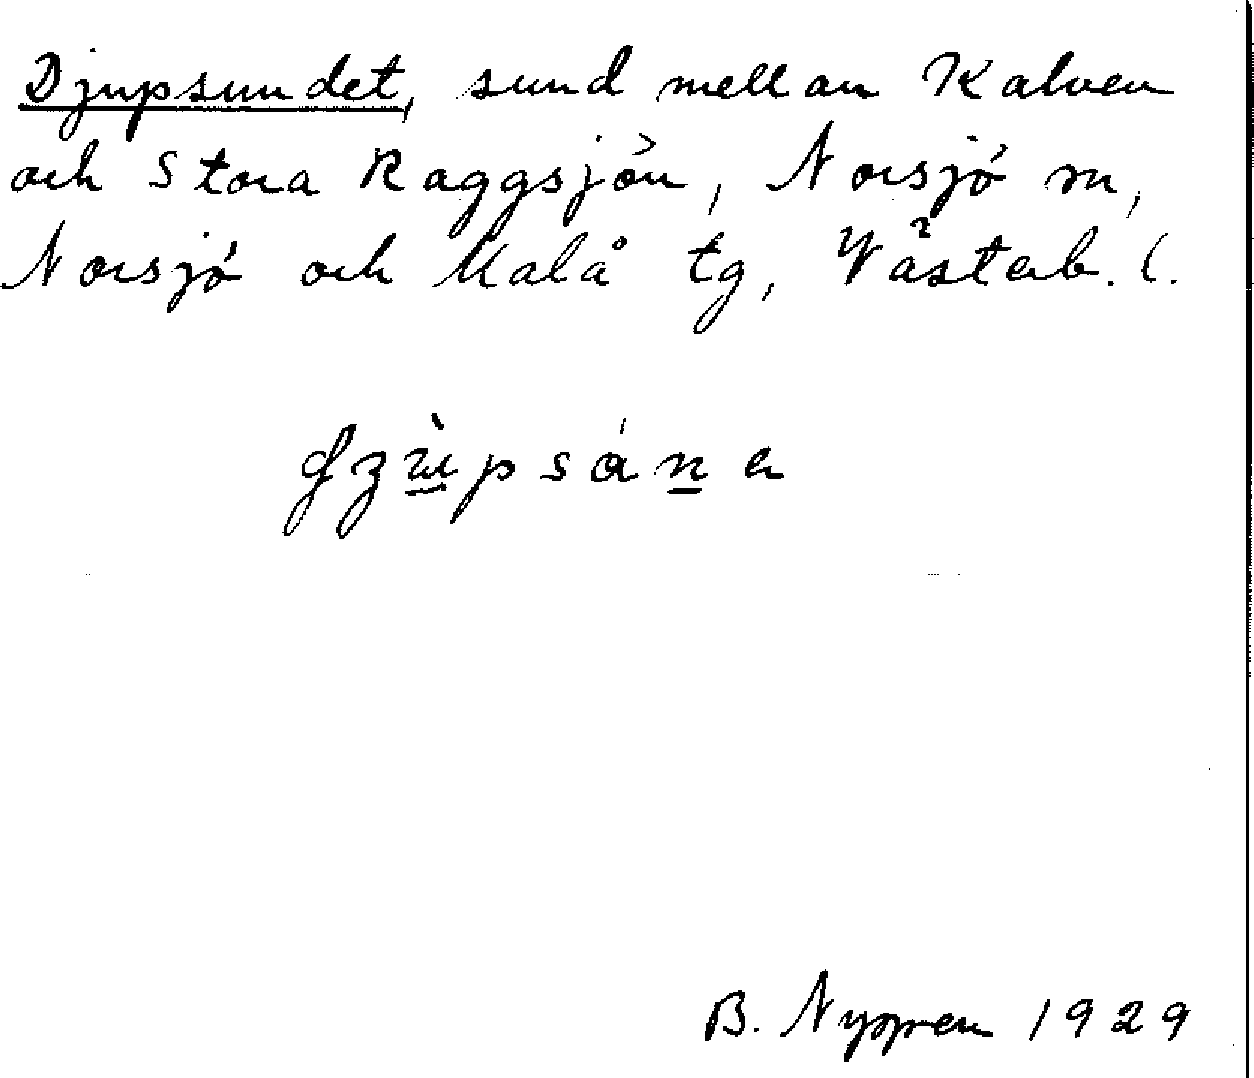 Djupsundet, sund mellan Kalven
och Stora Raggsjön, Norsjö sn,
Norsjö och Malå tg, Västerb. l.
B. Nygren 1929